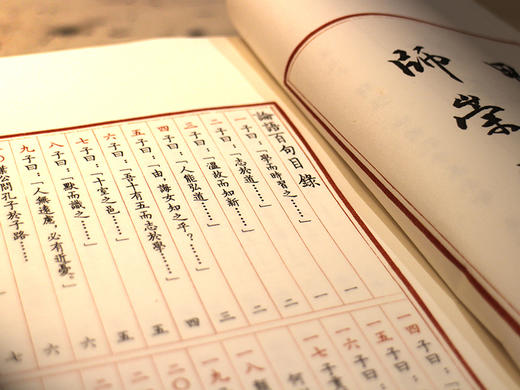 師
崇
論語百句目錄
一 子曰:「學而時習之……」 一
二 子曰:「志於道……」 一
三 子曰:「溫故而知新……」 二
四 子曰:「人能弘道……」 二
五 子曰:「由,誨女知之乎?……」 三
六 子曰:「吾十有五而志於學……」 四
七 子曰:「十室之邑……」 五
八 子曰:「默而識之……」 五
九 子曰:「人無遠慮,必有近憂。」 六
葉公問孔子於子路…… 六
七
一四 子曰:
一五 子曰:
一六 子曰:
一七
一八
一九
二〇